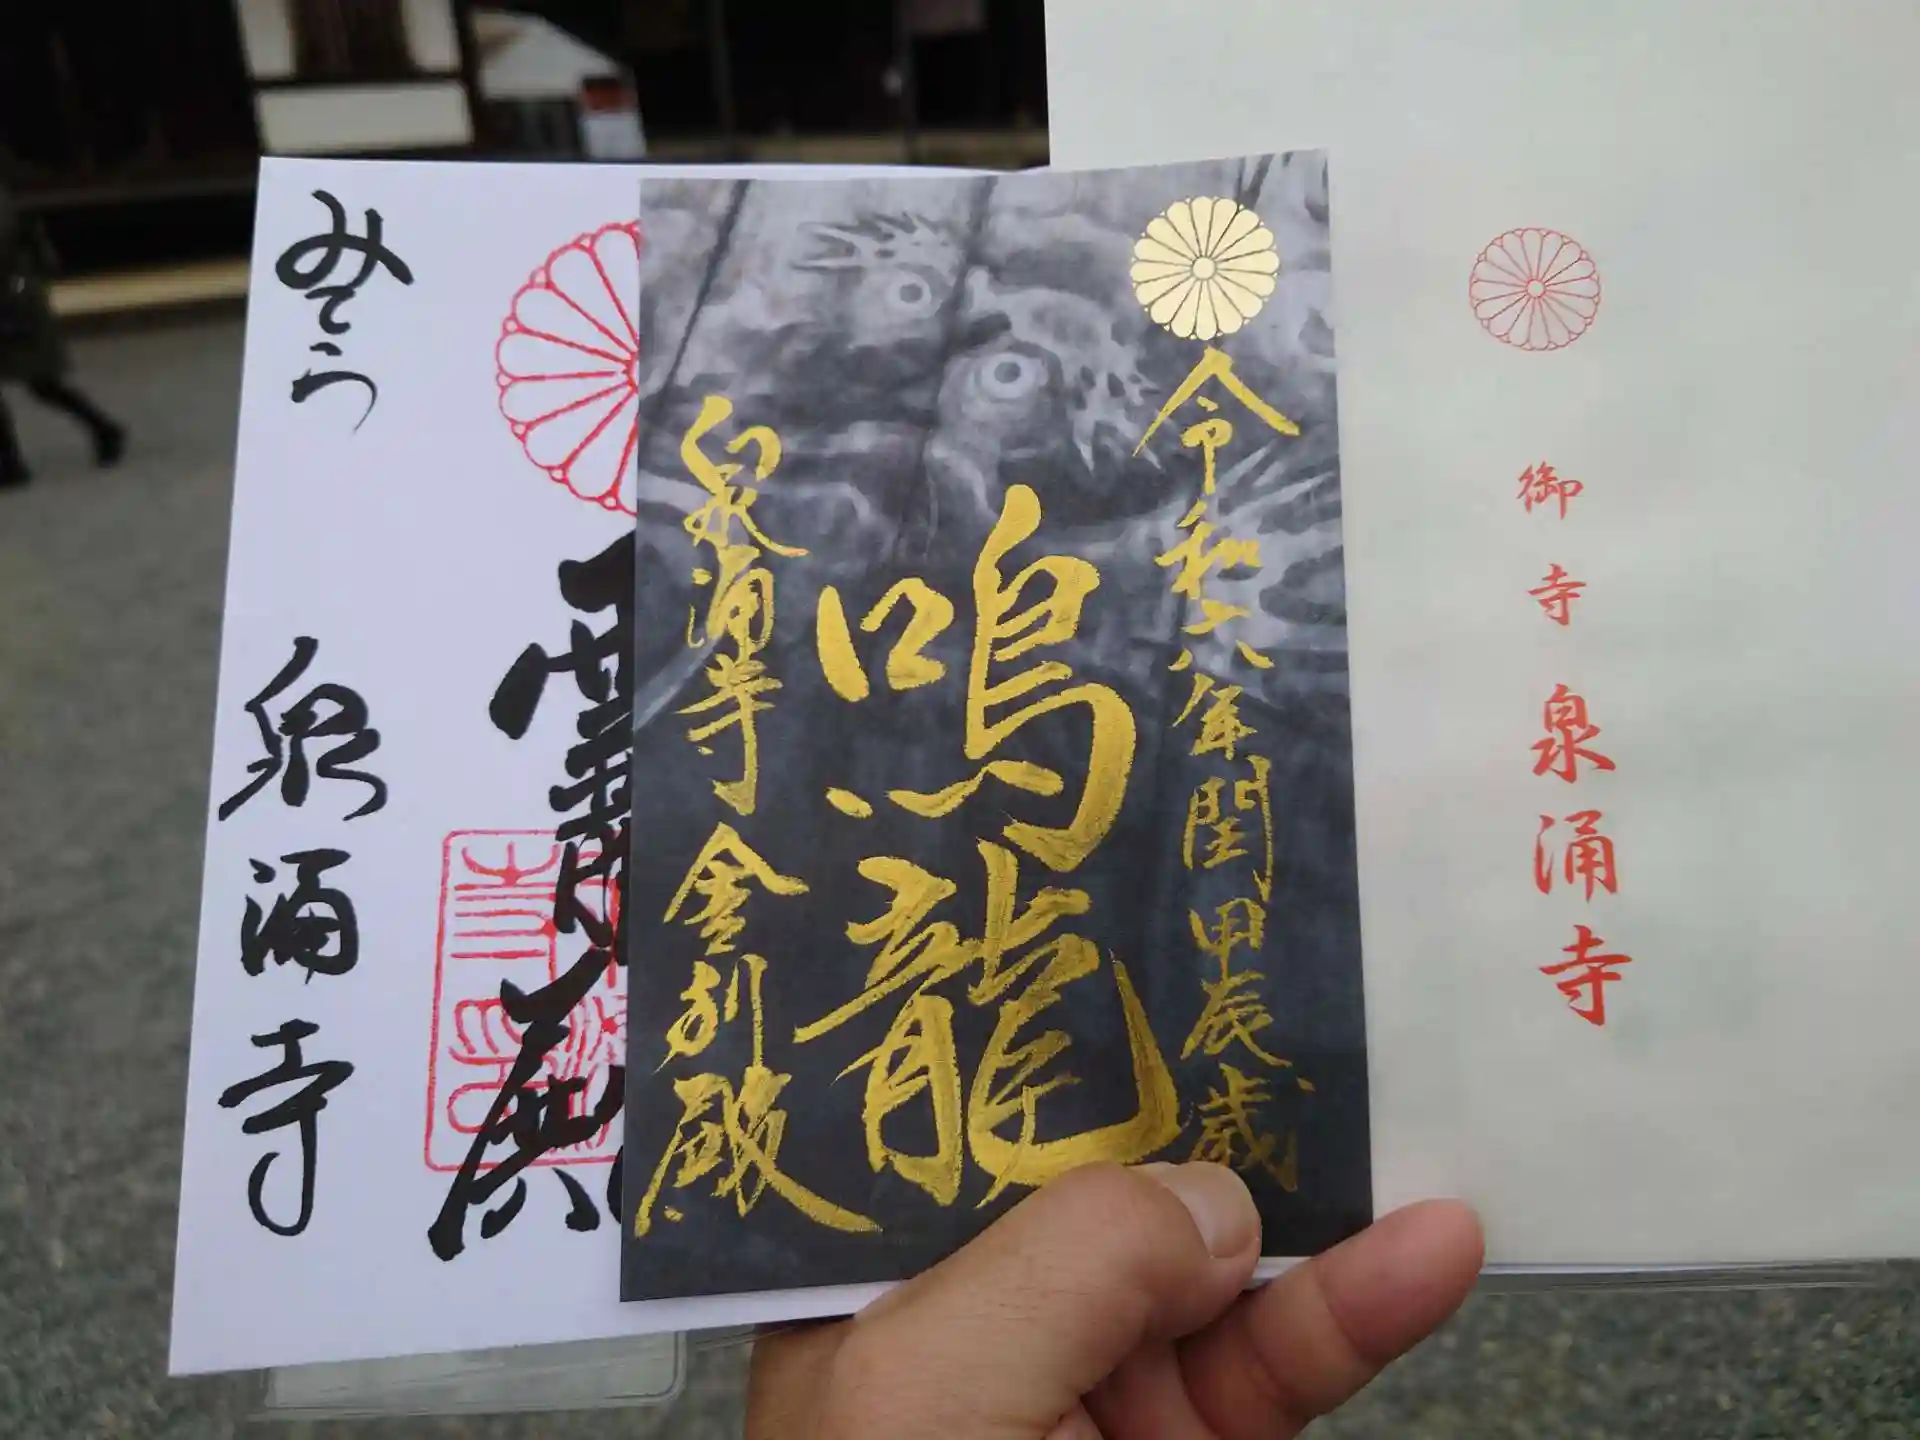 御寺 泉涌寺
令和六年閏甲辰歳
鳴龍
泉涌寺 舎利殿
みてら 泉涌寺